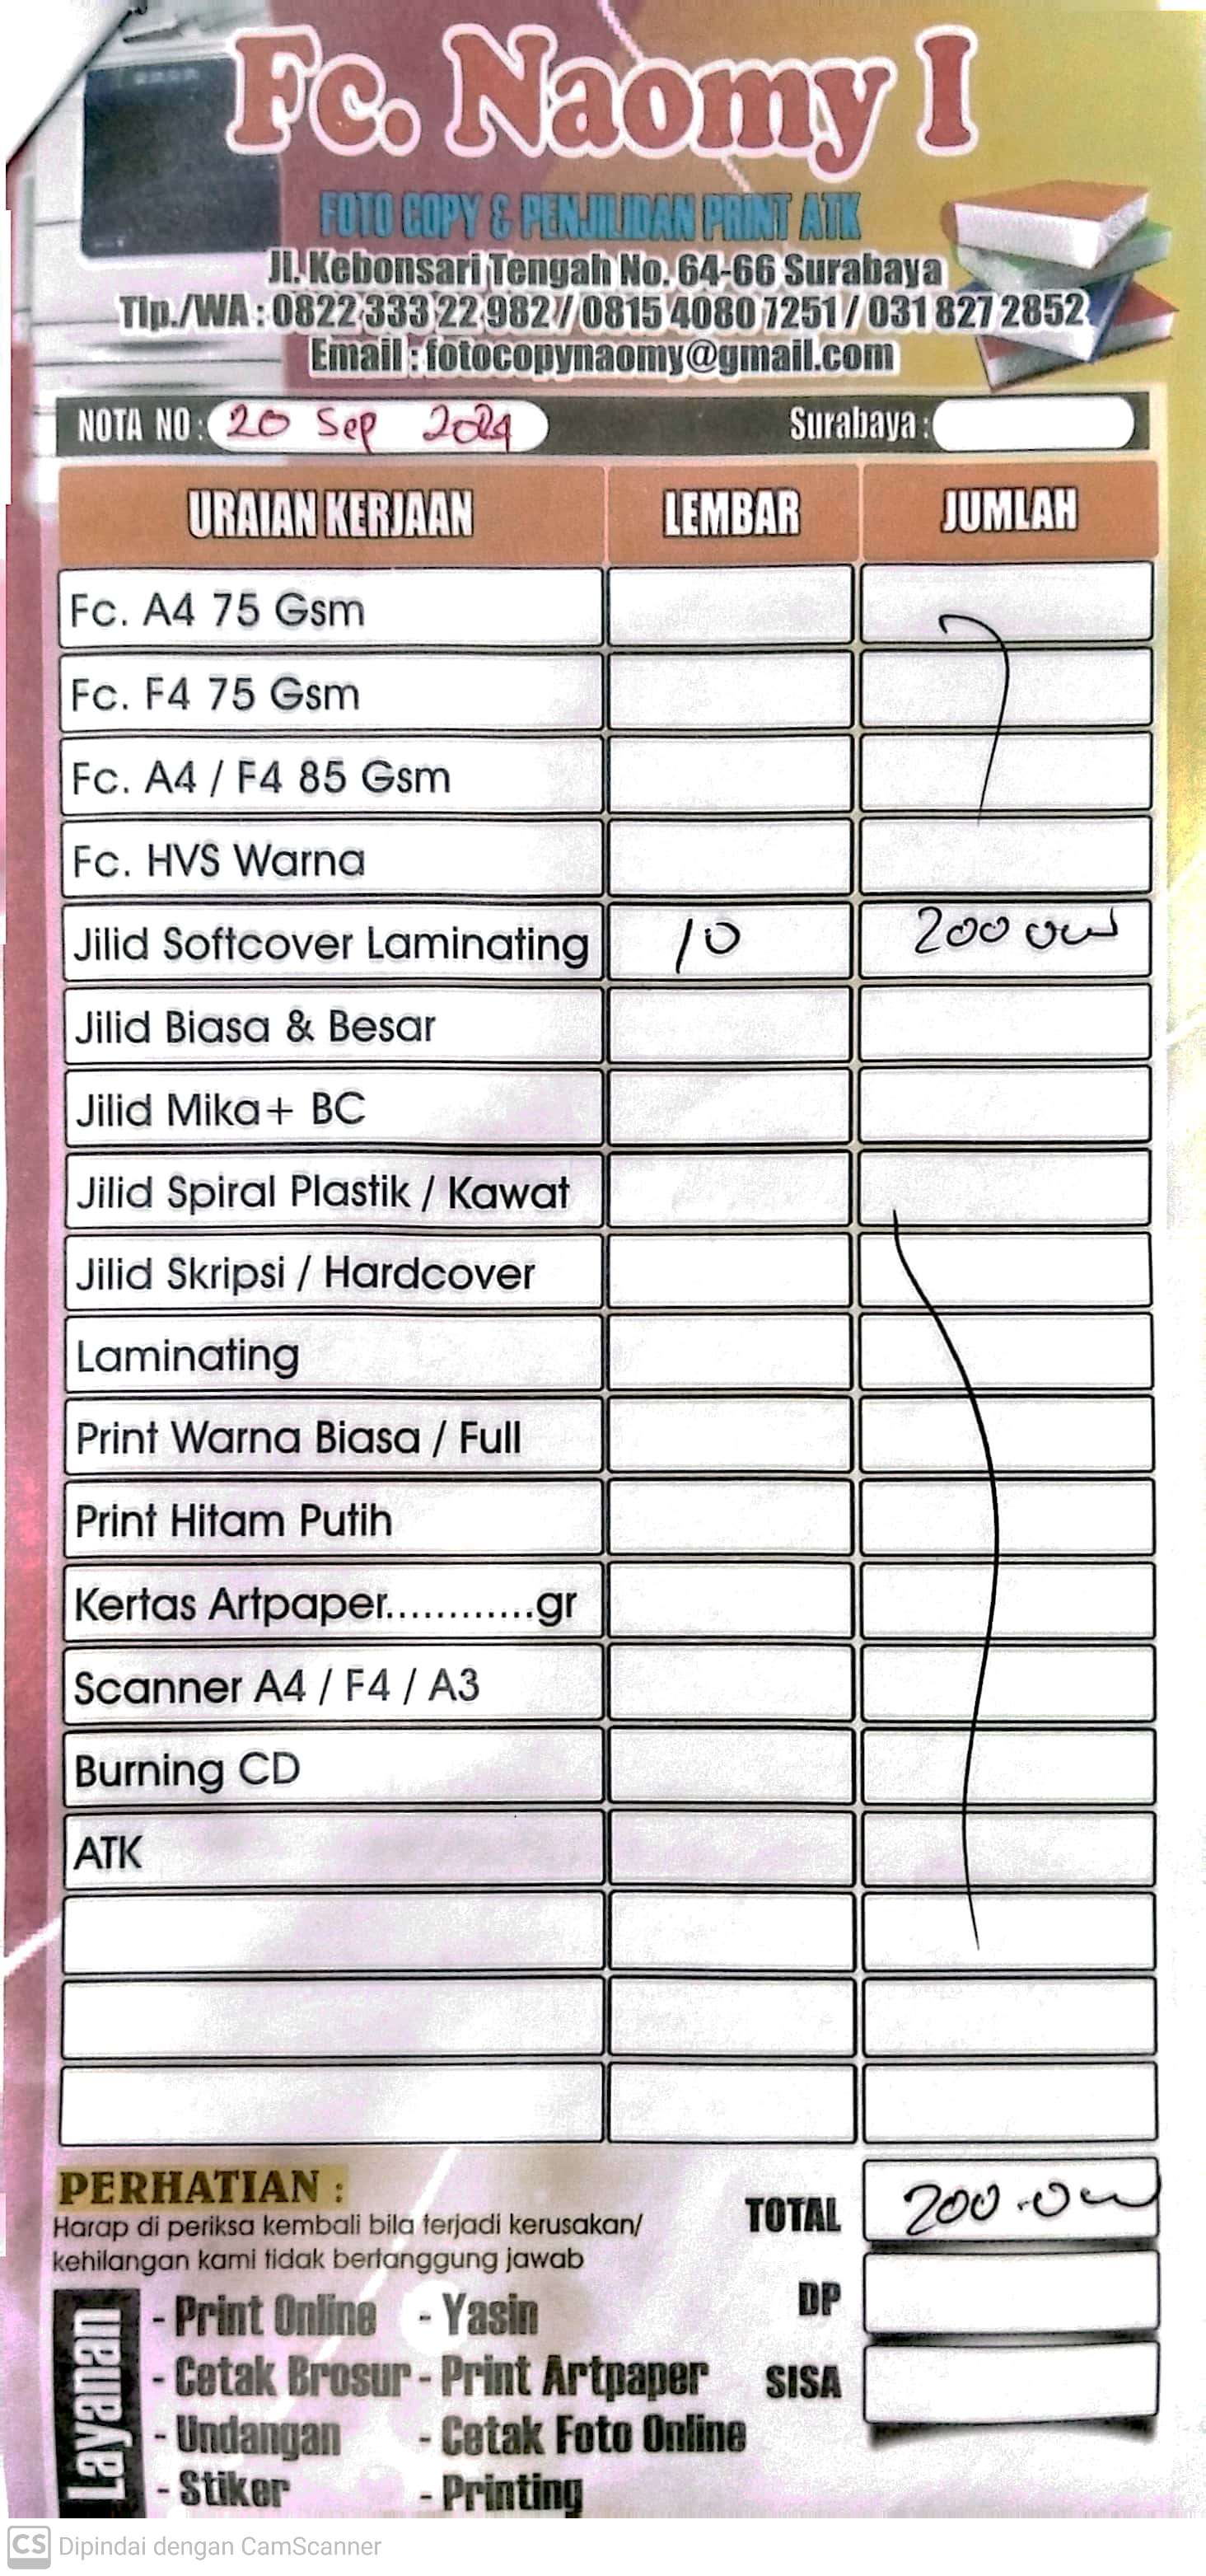 Fc. Naomy I
FOTO COPY & PENJILIDAN PRINT ATK
Jl. Kebonsari Tengah No. 64-66 Surabaya
Tlp./WA : 0822 333 22 982 / 0815 4080 7251 / 031 827 2852
Email : fotocopynaomy@gmail.com
NOTA NO : 20 Sep 2024 Surabaya :
URAIAN KERJAAN LEMBAR JUMLAH
Fc. A4 75 Gsm
Fc. F4 75 Gsm
Fc. A4 / F4 85 Gsm
Fc. HVS Warna
Jilid Softcover Laminating 10 200 000
Jilid Biasa & Besar
Jilid Mika+ BC
Jilid Spiral Plastik / Kawat
Jilid Skripsi / Hardcover
Laminating
Print Warna Biasa / Full
Print Hitam Putih
Kertas Artpaper.............gr
Scanner A4 / F4 / A3
Burning CD
ATK
PERHATIAN :
Harap di periksa kembali bila terjadi kerusakan/
kehilangan kami tidak bertanggung jawab
TOTAL 200.000
DP
SISA
Layanan
- Print Online - Yasin
- Cetak Brosur - Print Artpaper
- Undangan - Cetak Foto Online
- Stiker - Printing
CS Dipindai dengan CamScanner